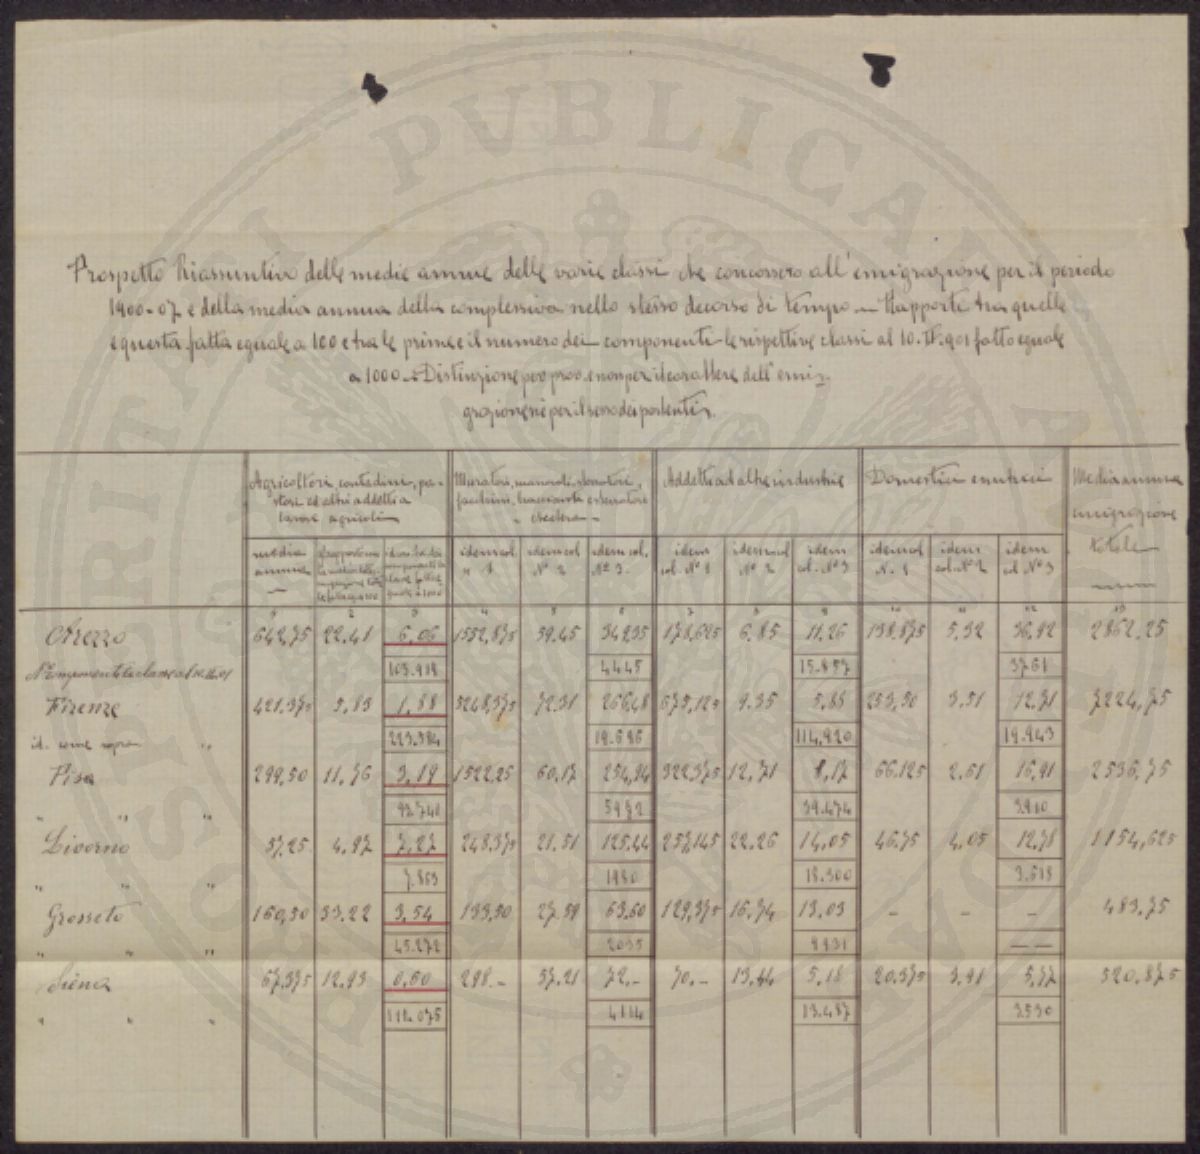 Prospetto Riassuntivo delle medie annue delle varie classi che concorsero all'emigrazione per il periodo
1900-07 e della media annua della complessiva nello stesso decorso di tempo — Rapporti tra quelle
e questa fatta eguale a 100 e tra le prime e il numero dei componenti le rispettive classi al 10. II. 901 fatto eguale
a 1000 — Distinzione per prov. e non per il carattere dell' emi-
grazione nè per il sesso dei partenti.
Agricoltori, contadini, pastori ed altri addetti a lavori agricoli
Muratori, manovali,
Addetti ad altre industrie
Domestici
Media annua emigrazione totale
media annua
idem col. n 1 idem col N° 2 idem col. N° 3 idem col. N° 1 idem col N° 2 idem col. N° 3 idem col N. 1 idem col. N° 2 idem col N° 3
1 2 3 4 5 6 7 8 9 10 11 12 13
Arezzo 642,75 22.41 6,06 6.85 11,26 138,875 2862,25
103.918 4445 15.857 3761
Firenze 421.375 5.83 1,88 72.31 675,125 9.35 5,83 253,50 3.51 12,71 7224,75
id. come sopra " 223.384 19.696 114,920 19.943
Pisa 299,50 11,76 3,19 1522,25 60,17 254,94 322,375 12,71 8,17 66.125 2.61 16,91 2536,75
" " " 93.741 39.474 3.910
Livorno 57.25 4.97 7,27 248,375 21.51 125.44 22.26 14,05 46.75 4,05 12,78 1154,625
" " " 7.863 1980 18.300
Grosseto 160,50 33.22 3,54 133,50 27.59 63,60 129,375 16,74 13,03 - - - 483,75
" " " 45.272 9931 — —
Siena 67,375 12.93 0,60 298.- 57.21 72.- 70.- 13.44 5,18 20.375 3.91 5,77 520,875
" " " 111.075 4114 13.487 3530